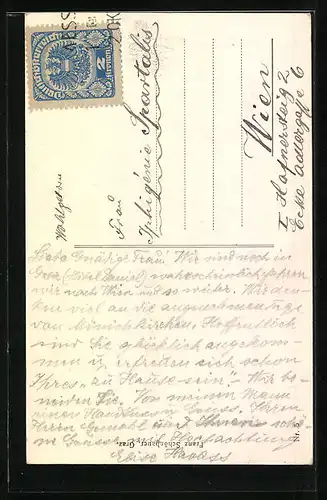 Deutschösterreich
2
Wohlgeboren
Frau
Iphigénie Spartalis
Wien
I Hafnersteig 2
Ecke Adlergasse 6
Liebe Gnädige Frau! Wir sind noch in
Graz (Hotel Daniel) wahrscheinlich fahren
wir nach Wien und so weiter. Wir den-
ken viel an die angenehmen Tage
von Mönichkirchen. Hoffentlich
sind Sie glücklich angekom-
men u. erfreuen sich schon
Ihres „zu Hause-sein". Wir be-
neiden Sie. Von meinem Mann
einen Handkuss u. Gruss. Ihrem
Herrn Gemahl und Ihnen schö-
ne Grüsse mit Hochachtung
Elise
Franz Schönbauer Graz